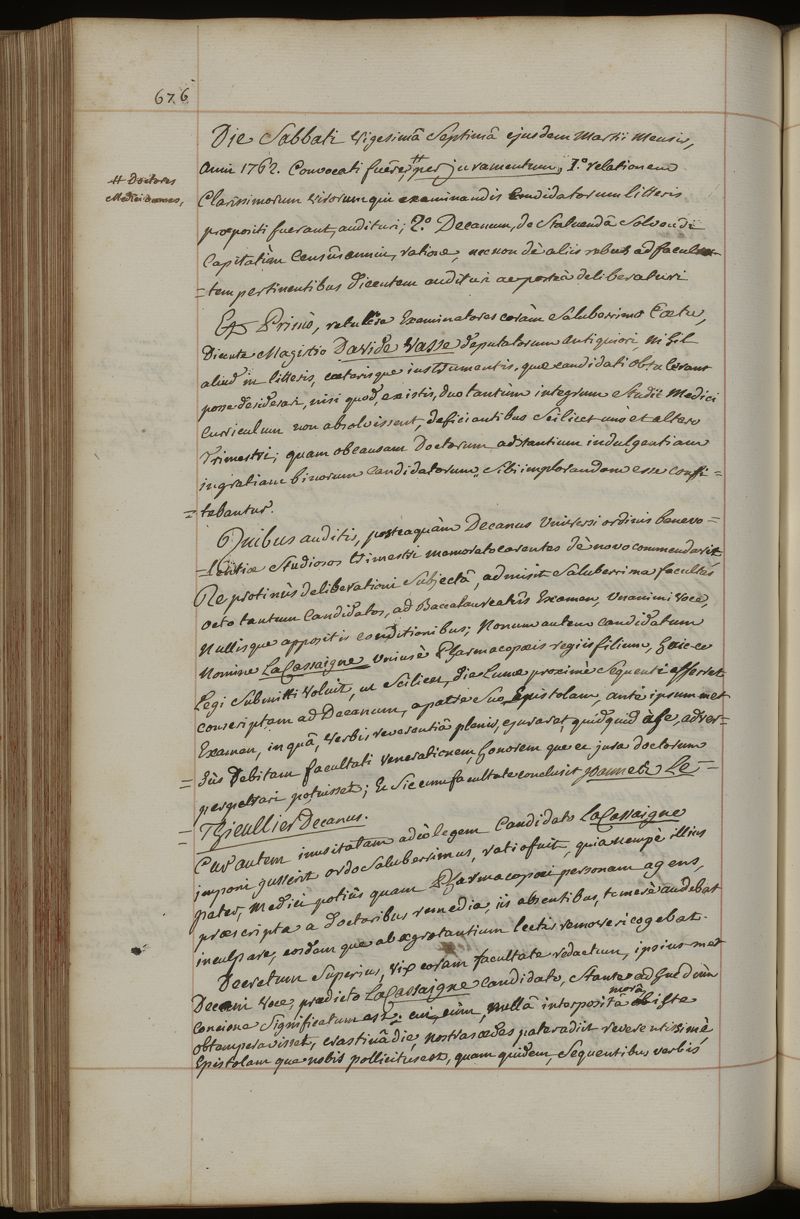 676
Die Sabbati vigesimâ Septimâ ejusdem Martii Mensis,
Anni 1762. Convocati fuêre, # per juramentum, 1.o relationem
# Doctores
Medici omnes,
Clarissimorum virorum qui examinandis Candidatorum litteris
præpositi fuerant, audituri; 2.o Decanum, de Statuendâ Solvendi
Capitatim Censûs annui, ratione, necnon de aliis rebus ad facul-
=tem pertinentibus dicentem audituri ac posteà deliberaturi
Et Primò, retulêre Examinatores coràm Saluberrimo Cœtu,
Dicente Magistro Davide Vasse deputatorum Antiquiori, nihil
aliud in litteris, cæterisque instrumentis, quæ candidati obtulerant
posse desiderari, nisi quod, ex istis, duo tantùm integrum Studii Medici
Curriculum non absolvissent, deficientibus Scilicet uno et altero
trimestri; quam ob causam Doctorum adstantium indulgentiam
in gratiam binorum Candidatorum Sibi implorandam esse confi=
=tebantur.
Quibus auditis, posteaquàm Decanus Universi ordinis benevo=
=lentiæ Studiosos trimestri memorato carentes de novo commendavit
Re protinùs deliberationi Subjectâ, admisit Saluberrima facultas
octo tantum Candidatos, ad Baccalaureatûs Examen, Unanimi voce,
Nullisque appositis conditionibus; Nonum autem candidatum
Nomine La Cassaigne Unius è Pharmacopæis regiis filium, huicce
Legi Submitti voluit, ut Scilicet, die Lunæ proximè Sequenti afferret
conscriptam ad Decanum, a patre Suo, Epistolam, antè ipsummet
Examen, in quâ, verbis reverentiâ plenis, ejuraret, quidquid à se, adver=
=sùs Debitam facultati venerationem, honorem que ac jura doctorum
perpetrari potuisset; Et Sic cum facultate conclusit Joannes Le=
=Thieullier Decanus.
Cur autem inusitatam adeò legem Candidato La Cassaigne
imponi jusserit ordo Saluberrimus, ratio fuit, quia nempè illius
pater, Medici potiùs quam Pharmacopæi personam agens,
præscripta a doctoribus remedia, iis absentibus, temerè audebat
inculpare, eosdam que ab ægrotantium lectis removeri cogebat.
Decretum Superius, vix coram facultate redactum, ipsius-met
Decani voce, prædicto La Cassaigne Candidato, Stante adhuc dùm
Concione Significatum est: cui, cùm, nullâ interpositâ morâ iste
obtemperavisset, crastinâ die, nostras ædes pater adiit reverentissimè
Epistolam que nobis pollicitus est, quam quidem, Sequentibus verbis